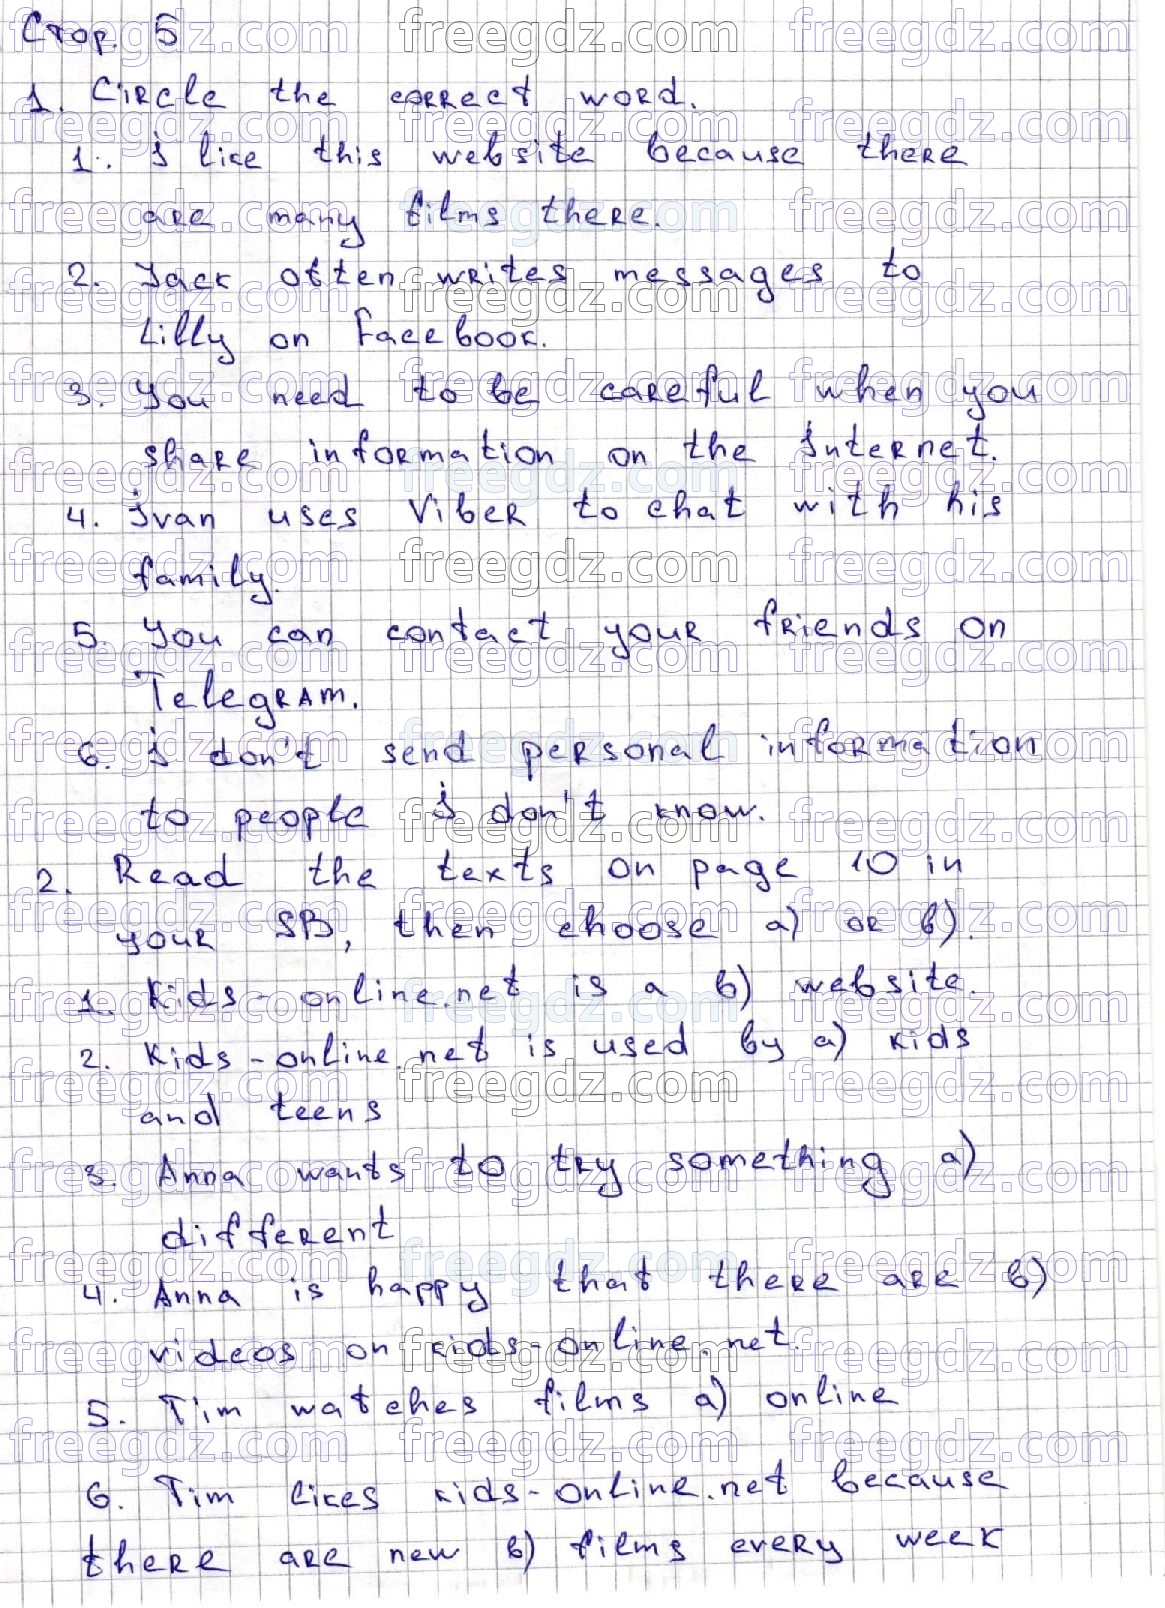 Стор. 5
1. Circle the correct word.
1. I like this website because there
are many films there.
2. Jack often writes messages to
Lilly on Facebook.
3. You need to be careful when you
share information on the Internet.
4. Ivan uses Viber to chat with his
family.
5. You can contact your friends on
Telegram.
6. I don't send personal information
to people I don't know.
2. Read the texts on page 10 in
your SB, then choose a) or b).
1. Kids-online.net is a b) website.
2. Kids-online.net is used by a) kids
and teens
3. Anna wants to try something a)
different
4. Anna is happy that there are b)
videos on kids-online.net.
5. Tim watches films a) online
6. Tim likes kids-online.net because
there are new b) films every week